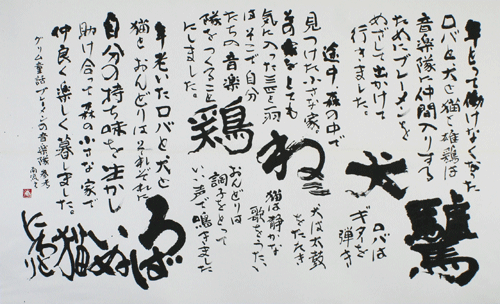 年とって働けなくなった
ロバと犬と猫と雄鶏は
音楽隊に仲間入りする
ためにブレーメンを
めざして出かけて
行きました。
途中森の中で
見つけた小さな家
その家がとても
気に入った三匹と一羽
はそこで自分
たちの音楽
隊をつくること
にしました。
驢馬
ロバは
ギターを
弾き
犬
犬は太鼓
をたたき
ねこ
猫は静かな
歌をうたい
鶏
おんどりは
調子をとって
いい声で鳴きました
年老いたロバと犬と
猫とおんどりはそれぞれの
自分の持ち味を生かし
助け合って森の小さな家で
仲良く楽しく暮しました。
グリム童話ブレーメンの音楽隊
ろば
いぬ
猫
にわとり